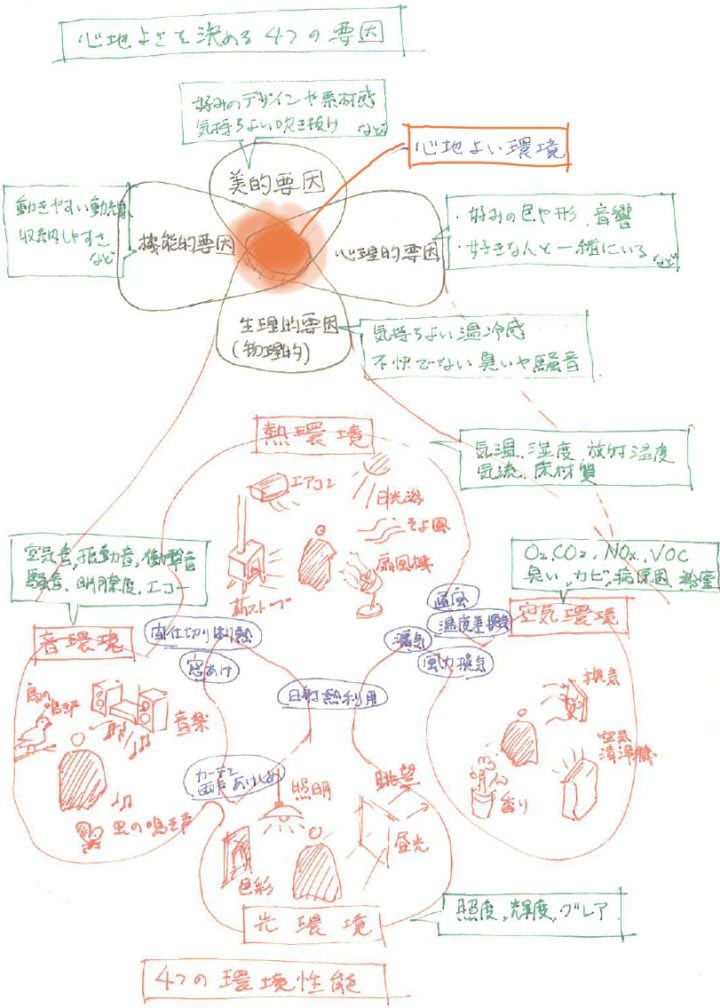 心地よさを決める4つの要因
好みのデザインや素材感
気持ちよい吹き抜け など
心地よい環境
美的要因
動きやすい動線
収納しやすさ
など
機能的要因
心理的要因
・好みの色や形、音響
・好きな人と一緒にいる
など
生理的要因
(物理的)
気持ちよい温冷感
不快でない臭いや騒音
熱環境
気温、湿度、放射温度
気流、床材質
エアコン
日光浴
そよ風
扇風機
薪ストーブ
空気音、振動音、衝撃音
騒音、明瞭度、エコー
O2、CO2、NOx、VOC
臭い、カビ、病原菌、粉塵
音環境
間仕切り断熱
窓あけ
通風
温度差換気
漏気
風力換気
空気環境
日射熱利用
鳥の
鳴声
音楽
虫の鳴き声
換気
空気
清浄機
香り
カーテン
雨戸あけしめ
照明
眺望
昼光
色彩
光環境
照度、輝度、グレア
4つの環境性能